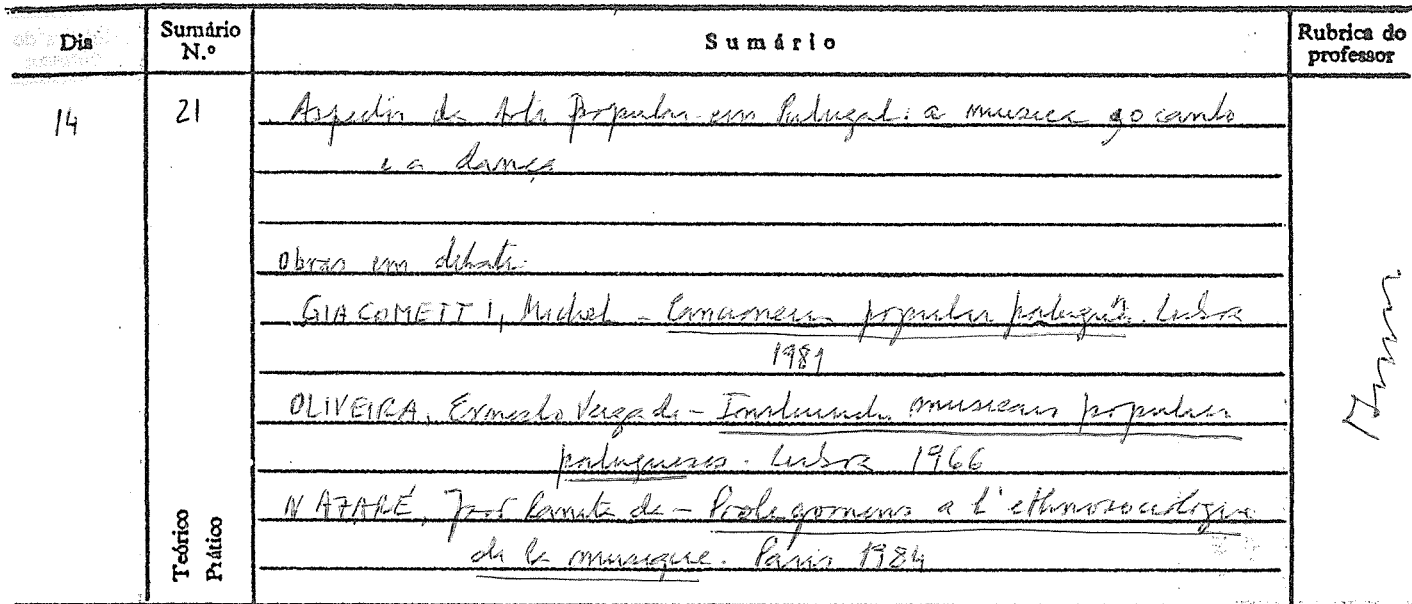 Dia
Sumário
N.º
Sumário
Rubrica do
professor
14
21
Aspectos da Arte Popular em Portugal: a musica, o canto
e a dança
Obras em debate:
GIACOMETTI, Michel - Cancioneiro popular português. Lisboa
1981
OLIVEIRA, Ernesto Veiga de - Instrumentos musicais populares
portugueses. Lisboa 1966
NAZARÉ, de - Prolegomens a l'ethnosociologie
de la musique. Paris 1984
Teórico
Prático